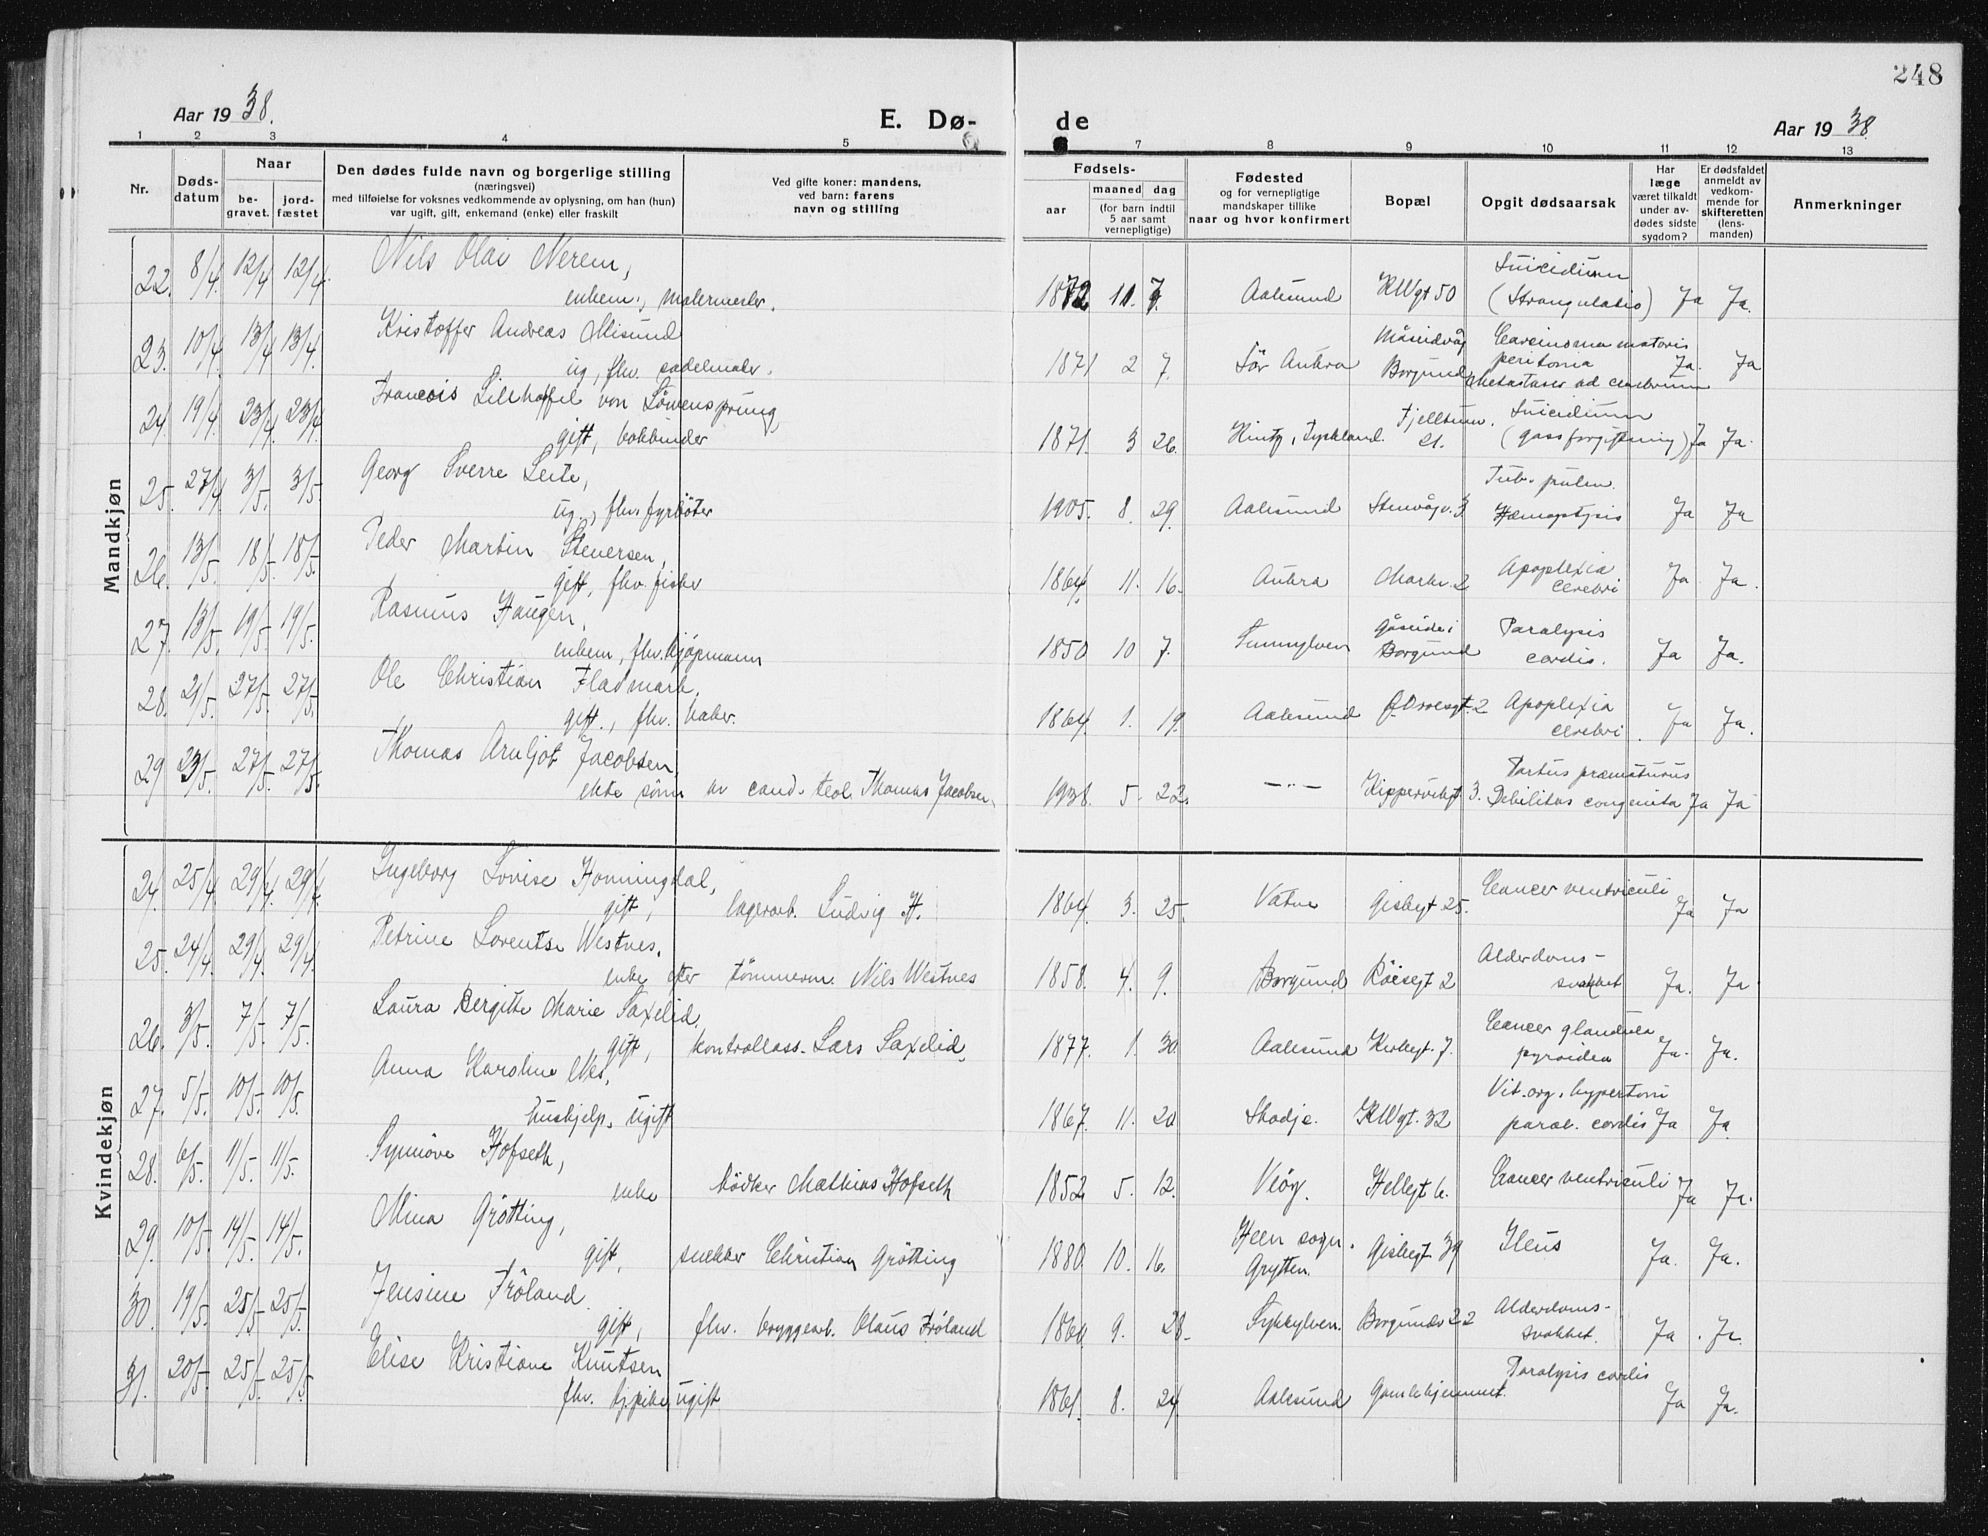 248
Aar 1938.
E. Dø-
de
Aar 1938
1 2 3 4 5 7 8 9 10 11 12 13
Nr.
Døds-
datum
Naar
be-
gravet.
jord-
fæstet
Den dødes fulde navn og borgerlige stilling
(næringsvei)
med tilføielse for voksnes vedkommende av oplysning, om han (hun)
var ugift, gift, enkemand (enke) eller fraskilt
Ved gifte koner: mandens,
ved barn: farens
navn og stilling
Fødsels-
aar
maaned dag
(for barn indtil
5 aar samt
vernepligtige)
Fødested
og for vernepligtige
mandskaper tillike
naar og hvor konfirmert
Bopæl
Opgit dødsaarsak
Har
læge
været tilkaldt
under av-
dødes sidste
sygdom?
Er dødsfaldet
anmeldt av
vedkom-
mende for
skifteretten
(lens-
manden)
Anmerkninger
Mandkjøn
22. 8/4. 12/4 12/4. Nils Olai Nerem,
enkem., malermester. 1872 11. 7. Aalesund KWgt 50 Suicidium
(Strangulatio) Ja Ja.
23. 10/4. 13/4 13/4. Kristoffer Andreas Misund
ug, fhv. sadelmaker. 1871 2 7. Sör Aukra Måseidvåg
Borgund Carcinoma
peritonia
Metastaser ad cerebrum Ja. Ja
24. 19/4. 23/4. 23/4. Francois Lillhoffel von Löwensprung,
gift, bokbinder 1871. 3 26. Tyskland. Fjelltunv.
21. Suicidium
(gassforgiftning) Ja Ja.
25. 27/4 3/5. 3/5. Georg Sverre Leite,
ug., fhv. fyrböter 1905. 8. 29. Aalesund Stenvågv. 3 Tub. pulm.
Hæmoptysis Ja Ja
26. 13/5. 18/5. 18/5. Peder Martin Stenersen,
gift, fhv. fisker 1864. 11. 16. Aukra Markv. 2 Apoplexia
cerebri Ja Ja.
27. 13/5. 19/5. 19/5. Rasmus Haugen,
enkem, fhv. kjøpmann 1850 10 7. Sunnylven Gåseide i
Borgund Paralysis
cordis. Ja Ja.
28. 21/5. 27/5. 27/5. Ole Christian Fladmark,
gift., fhv. baker. 1864. 1. 19. Aalesund 2 Apoplexia
cerebri Ja Ja.
29 23/5. 27/5. 27/5. Thomas Arnljot Jacobsen,
ekte sönn av cand. teol. Thomas Jacobsen. 1938. 5. 22. —„— Kippervikgt 3. Partus præmaturus
Debilitas congenita Ja Ja
Kvindekjøn
24. 25/4. 29/4. 29/4. Ingeborg Lovise Honningdal,
gift, lagerarb. Ludvig H. 1864. 3. 25. Vatne Giskegt 25. Cancer ventriculi Ja Ja
25. 24/4. 29/4. 29/4. Petrine Lorentse Westnes.
enke efter tömmerm. Nils Westnes 1858. 4. 9. Borgund Röisegt 2 Alderdoms-
svakhet Ja. Ja
26. 3/5. 7/5. 7/5. Laura Bergitte Marie Saxelid,
gift, kontrollass. Lars Saxelid. 1877. 1. 30. Aalesund Kirkegt. 7. Cancer glandula
pyroidea Ja. Ja.
27. 5/5. 10/5. 10/5. Anna Karoline Nes,
hushjelp, ugift 1867. 11. 20 Skodje. KWgt. 32 Vit. org. hypertoni
paral. cordis Ja Ja.
28. 6/5. 11/5. 11/5. Synnöve Hofseth,
enke bödker Mathias Hofseth 1852 5. 12. Veöy. Hellegt 6. Cancer ventriculi Ja Ja.
29. 10/5. 14/5. 14/5. Mina Grötting,
gift, snekker Christian Grötting 1880 10. 16. Heen sogn.
Grytten. Giskegt 39 Ileus Ja. Ja.
30. 19/5. 25/5. 25/5. Jensine Fröland.
gift, fhv. bryggearb. Olaus Fröland 1860 9. 28. Sykkylven. Borgundv 22 Alderdoms-
svakhet. Ja. Ja.
31. 20/5. 25/5. 25/5. Elise Kristiane Knutsen
fhv. tjpike, ugift 1861. 8. 24. Aalesund Gamlehjemmet. Paralysis cordis Ja Ja.